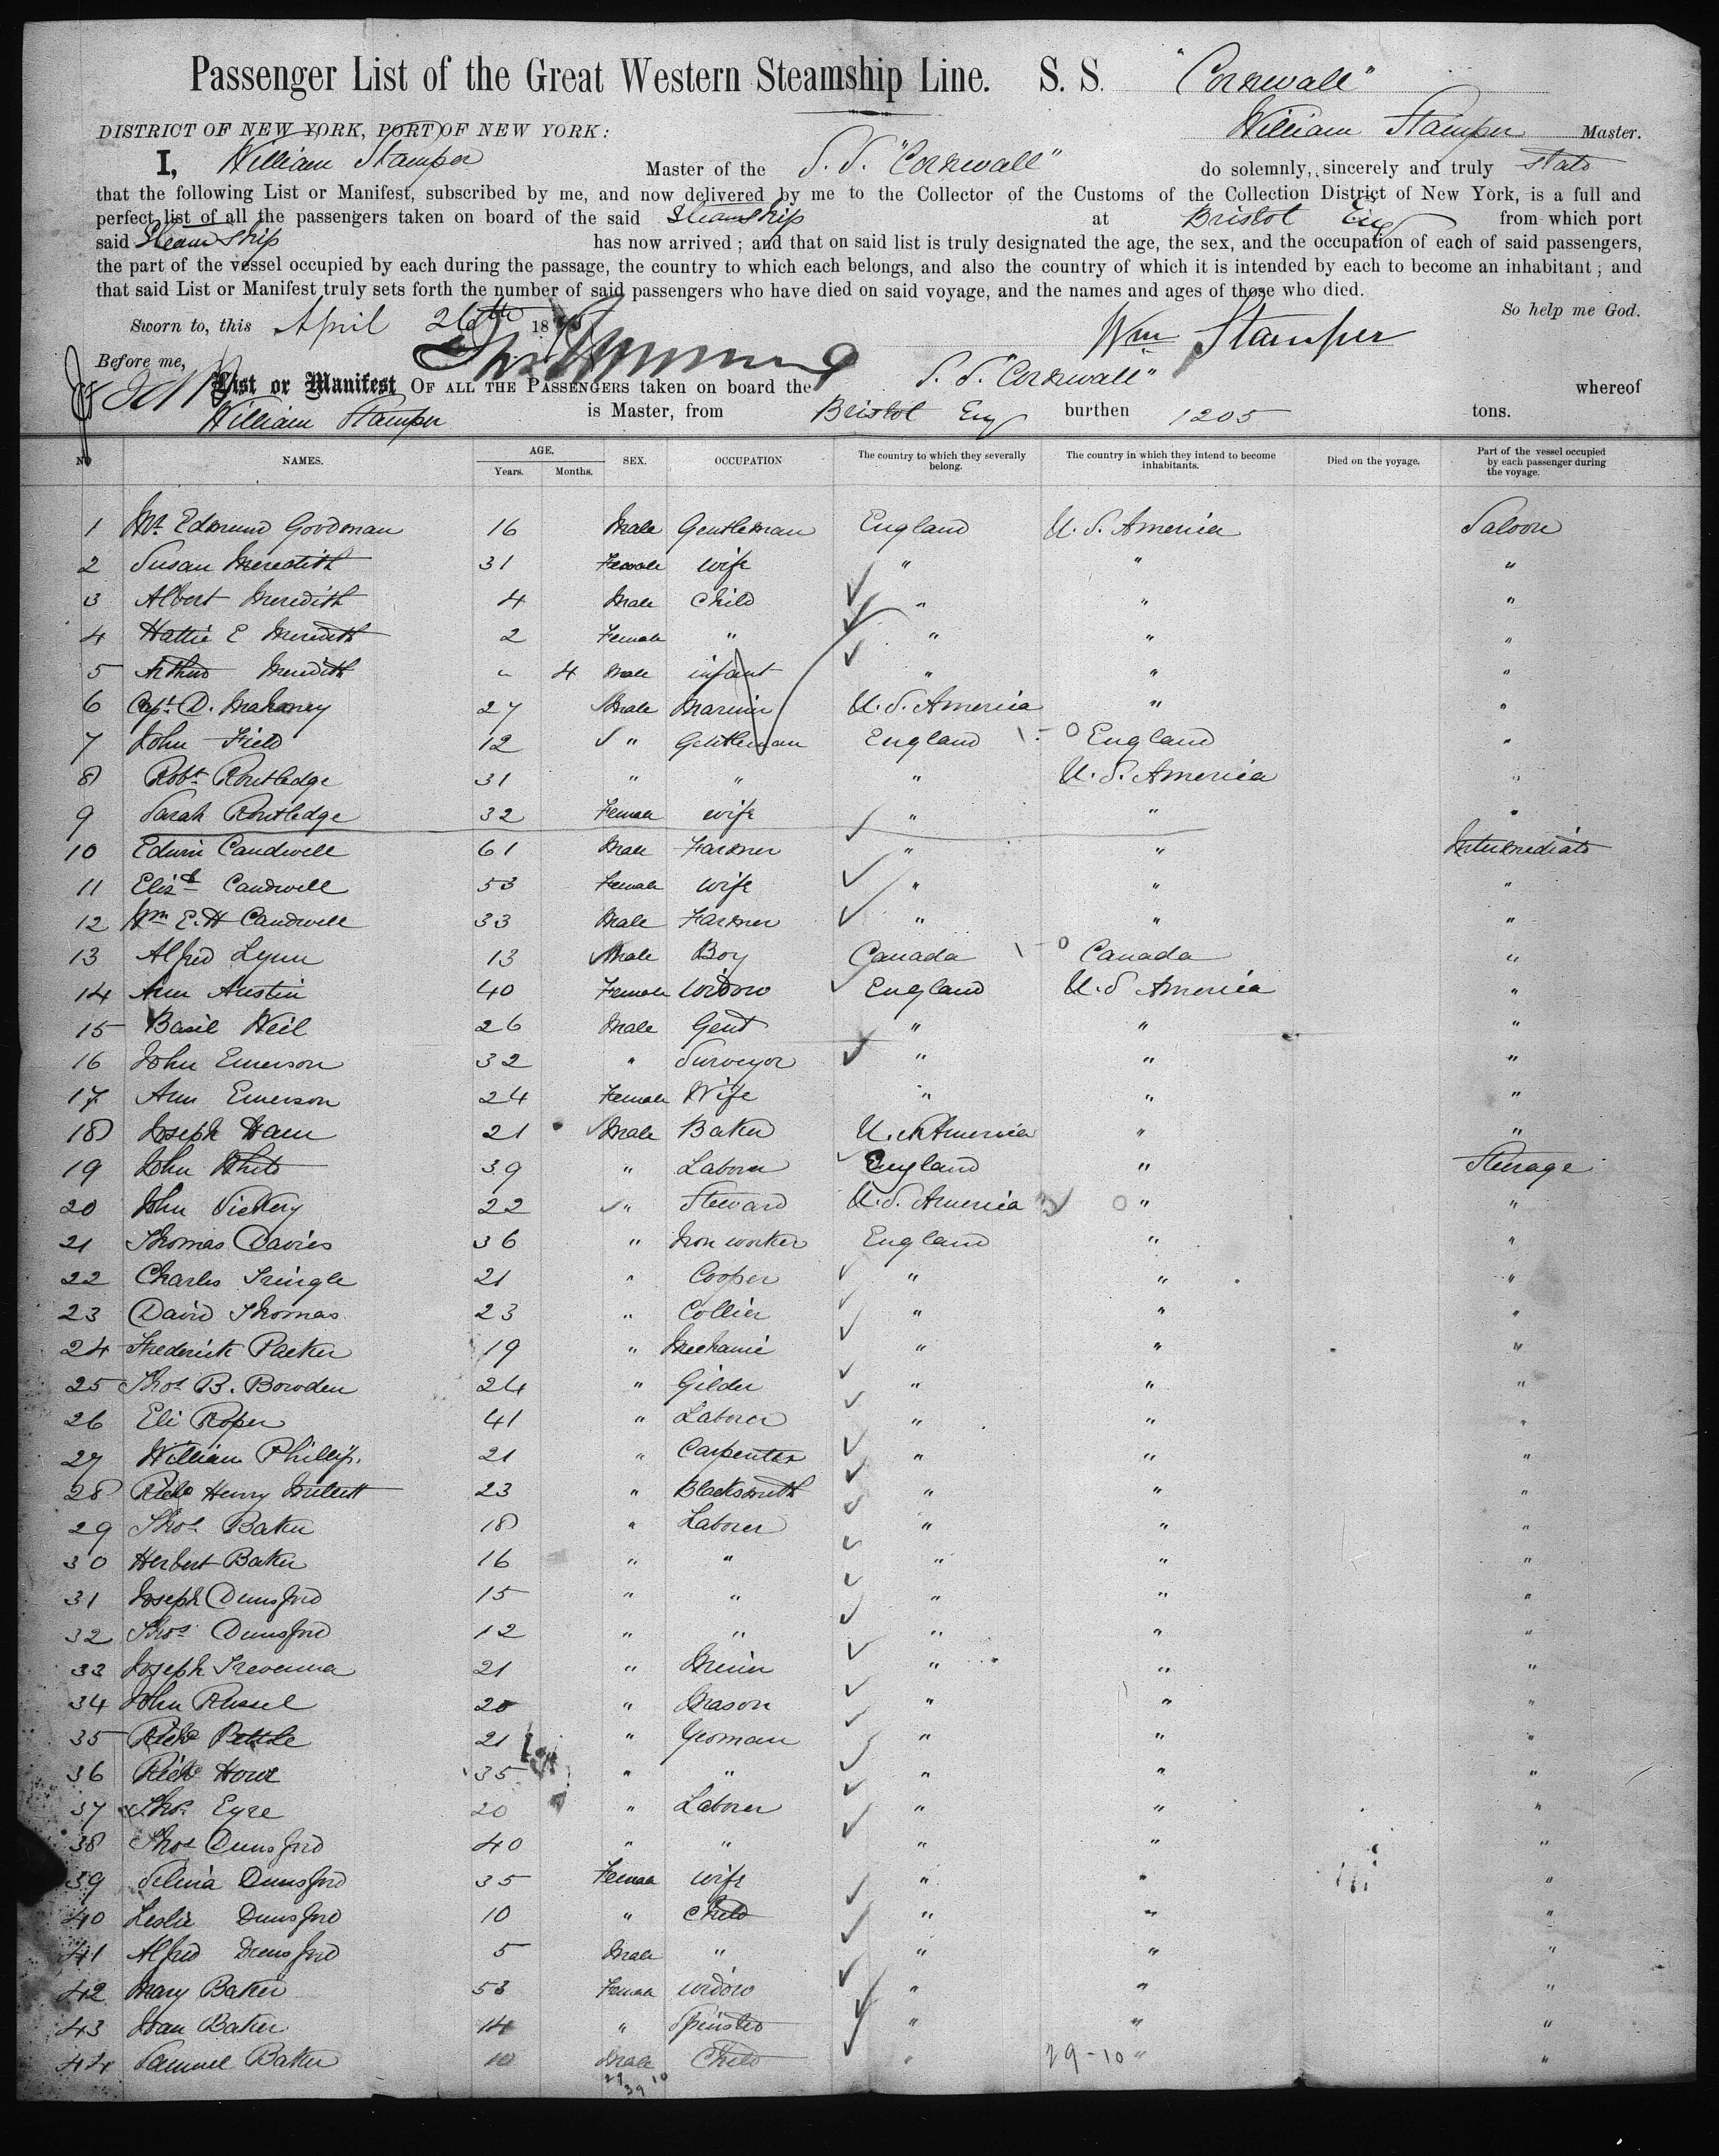 Passenger List of the Great Western Steamship Line. S. S. "Cornwall"
DISTRICT OF NEW YORK, PORT OF NEW YORK: William Stamper Master.
I, William Stamper Master of the S. S. "Cornwall" do solemnly, sincerely and truly state
that the following List or Manifest, subscribed by me, and now delivered by me to the Collector of the Customs of the Collection District of New York, is a full and
perfect list of all the passengers taken on board of the said Steamship at Bristol Eng from which port
said Steamship has now arrived ; and that on said list is truly designated the age, the sex, and the occupation of each of said passengers,
the part of the vessel occupied by each during the passage, the country to which each belongs, and also the country of which it is intended by each to become an inhabitant ; and
that said List or Manifest truly sets forth the number of said passengers who have died on said voyage, and the names and ages of those who died.
So help me God.
Sworn to, this April 26th 18
Wm Stamper
Before me,
List or Manifest OF ALL THE PASSENGERS taken on board the S. S. "Cornwall" whereof
William Stamper is Master, from Bristol Eng burthen 1205 tons.
No NAMES. AGE. Years. Months. SEX. OCCUPATION The country to which they severally belong. The country in which they intend to become inhabitants. Died on the voyage. Part of the vessel occupied by each passenger during the voyage.
1 Mr Edmund Goodman 16 Male Gentleman England U. S. America Saloon
2 Susan Meredith 31 Female wife " " "
3 Albert Meredith 4 Male Child " " "
4 Hattie E Meredith 2 Female " " " "
5 Arthur Meredith " 4 Male infant " " "
6 Capt D. Mahoney 27 Male Mariner U. S. America " "
7 John Field 12 " Gentleman England England "
8 Robt Routledge 31 " " " U. S. America "
9 Sarah Routledge 32 Female wife " " "
10 Edwin Caudwell 61 Male Farmer " " Intermediate
11 Elizth Caudwell 53 Female wife " " "
12 Wm E. H Caudwell 33 Male Farmer " " "
13 Alfred Lynn 13 Male Boy Canada Canada "
14 Ann Austin 40 Female Widow England U. S America "
15 Basil Weil 26 Male Gent " " "
16 John Emerson 32 " Surveyor " " "
17 Ann Emerson 24 Female Wife " " "
18 Joseph Ham 21 Male Baker U. S America " "
19 John White 39 " Laborer England " Steerage
20 John Vickery 22 " Steward U. S. America " "
21 Thomas Davies 36 " Iron worker England " "
22 Charles Pringle 21 " Cooper " " "
23 David Thomas 23 " Collier " " "
24 Frederick Parker 19 " Mechanic " " "
25 Thos B. Bowden 24 " Gilder " " "
26 Eli Roper 41 " Laborer " " "
27 William Phillips 21 " Carpenter " " "
28 Richd Henry 23 " Blacksmith " " "
29 Thos Baker 18 " Laborer " " "
30 Herbert Baker 16 " " " " "
31 Joseph Dunsford 15 " " " " "
32 Thos Dunsford 12 " " " " "
33 Joseph Trevenna 21 " Miner " " "
34 John Russel 20 " Mason " " "
35 Richd 21 " Yeoman " " "
36 Richd Howe 35 " " " " "
37 Thos Eyre 20 " Laborer " " "
38 Thos Dunsford 40 " " " " "
39 Selina Dunsford 35 Female wife " " "
40 Leslie Dunsford 10 " Child " " "
41 Alfred Dunsford 5 Male " " " "
42 Mary Baker 53 Female widow " " "
43 Baker 14 " Spinster " " "
44 Samuel Baker 10 Male Child " 29-10 " "
29 39 10